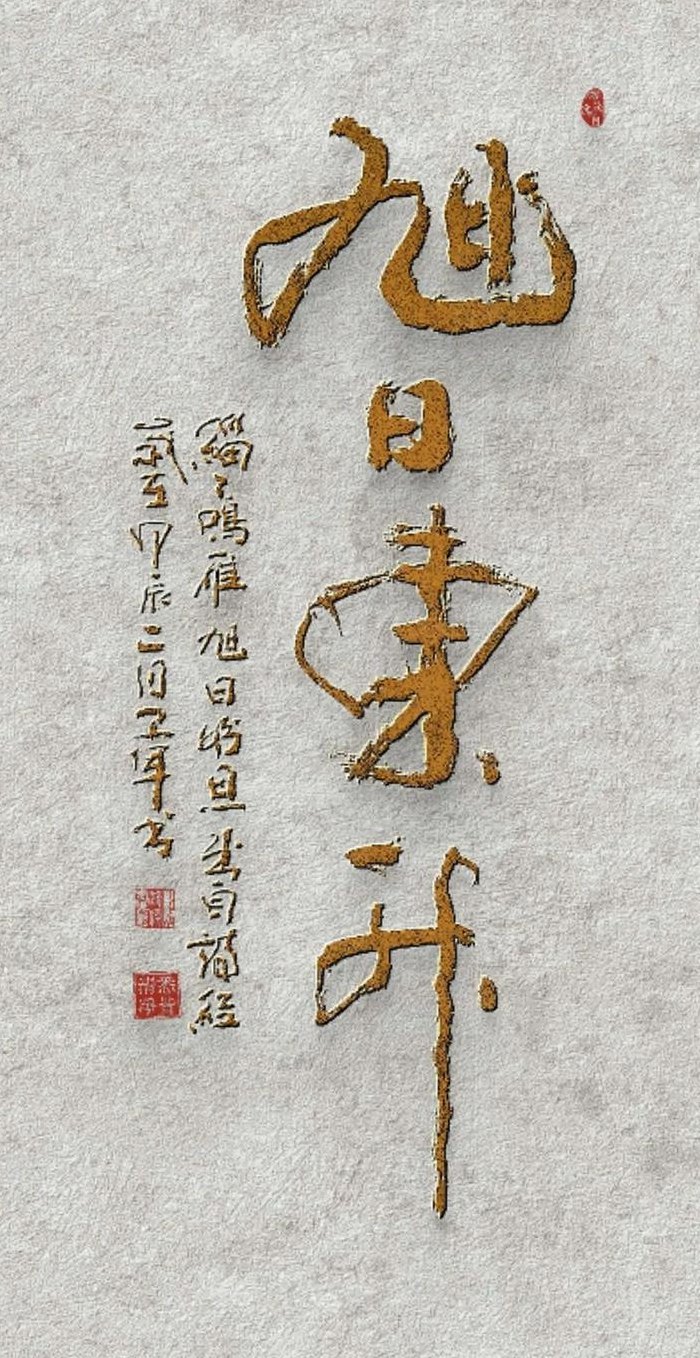 旭日東升
鳴雁旭日始旦出自詩經
歲在甲辰二月卫軍书